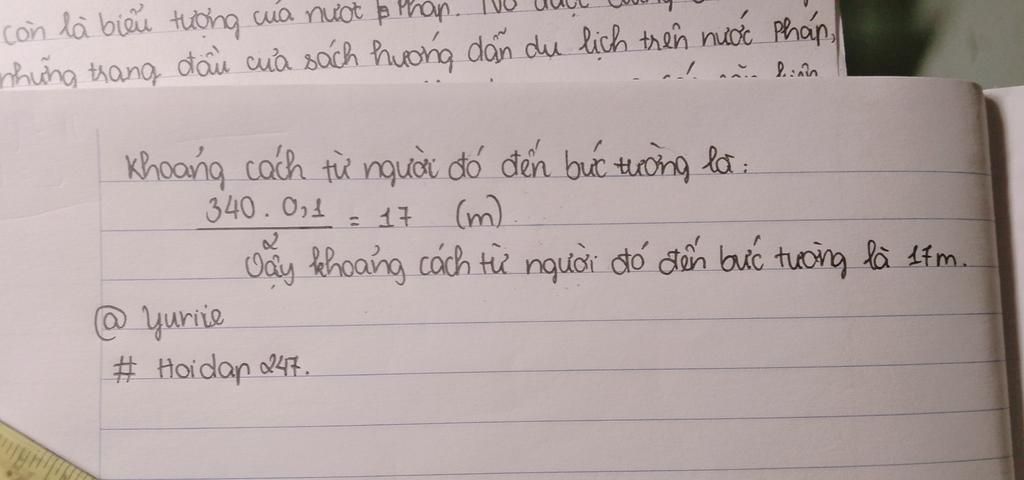 còn là biểu tượng của nước Pháp. Nó được
những trang đầu của sách hướng dẫn du lịch trên nước Pháp,
Khoảng cách từ người đó đến bức tường là:
340 . 0,1 / 2 = 17 (m)
Vậy khoảng cách từ người đó đến bức tường là 17m.
@ Yuriie
# Hoidap 247.